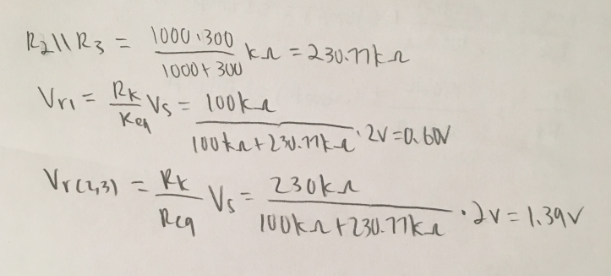 R2||R3 = 1000·300 / 1000+300 kΩ = 230.77kΩ
Vr1 = Rk/Req Vs = 100kΩ / 100kΩ+230.77kΩ · 2V = 0.60V
Vr(2,3) = Rk/Req Vs = 230kΩ / 100kΩ+230.77kΩ · 2V = 1.39V